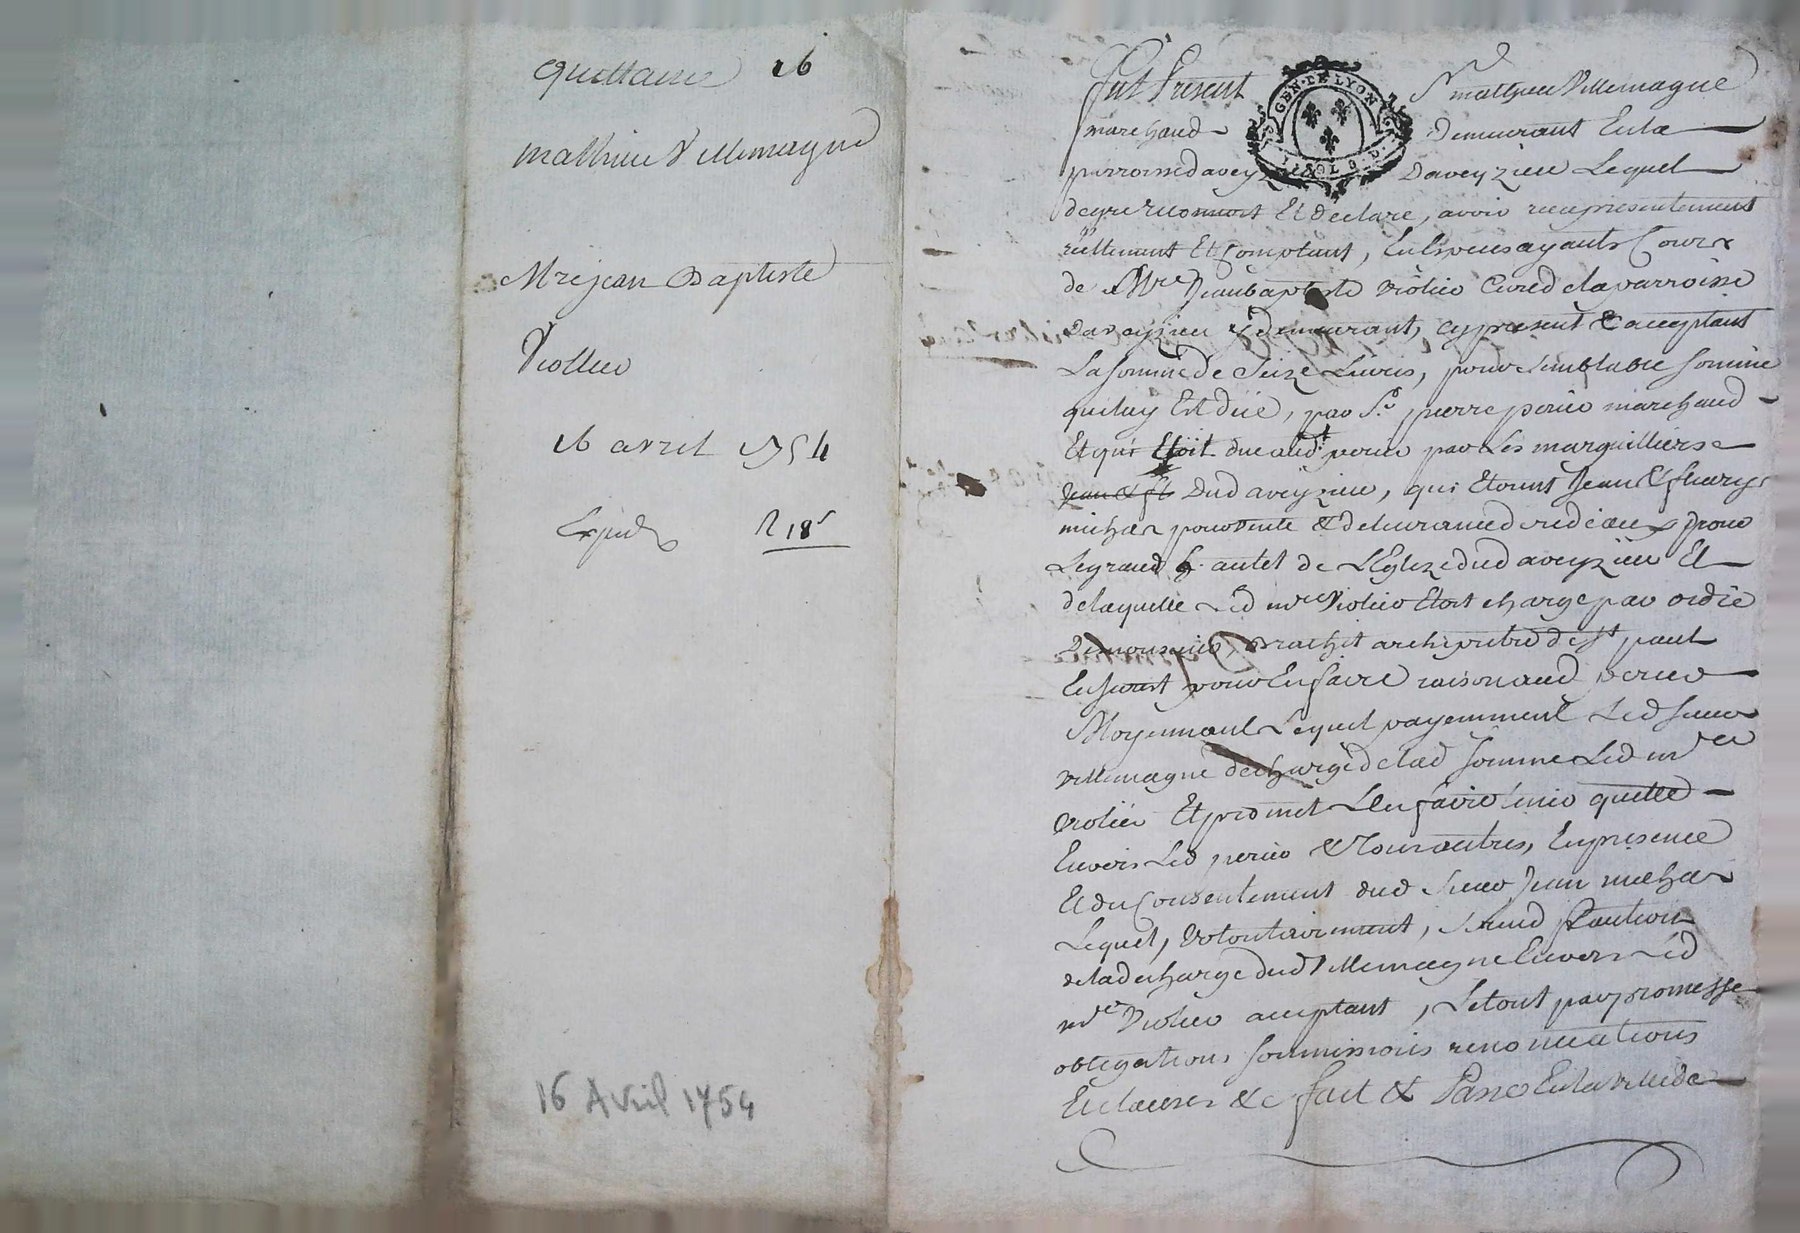 Quittance 16
Mathieu Villemagne
Mre jean Baptiste
Viollier
16 avril 1754
Expedié 18s
16 Avril 1754
GEN. DE LYON
Fut Present Sr mathieu Villemagne
marchand demeurant En la
parroisse davey daveyzieu Lequel
de gre reconnoit Et declare, avoir reçu presentement
réellement Et Comptant, En Especes ayants Cours
de Mre Jean baptiste violier Curé de la parroisse
daveyzieu y demeurant, cy present & acceptant
La somme de Seize Livres, pour semblable somme
qui luy Est düe, par Sr pierre perier marchand
Et qui Etoit due audt perier par Les marguilliers
Jean & fl Dud aveyzieu, qui Etoient Jean & fleury
michar pour vente & delivrance de rideaux pour
Le grand autel de L'Eglize dud aveyzieu Et
de laquelle Led mre violier Etoit chargé par ordre
de monsieur archiprêtre de St paul
En Jarest pour En faire raison aud perier
Moyennant Lequel payemment Led sieur
villemagne decharge de lad somme Led mre
violier Et promet L'En faire tenir quitte
Envers Led perier & tous autres, En presence
Et du Consentement dud sieur Jean michar
Lequel, volontairement, se rend Caution
de la decharge dud Villemagne Envers Led
mre violier acceptant, Le tout par promesse
obligations soumissions renonciations
Et clauses &c fait & Passé En la ville de